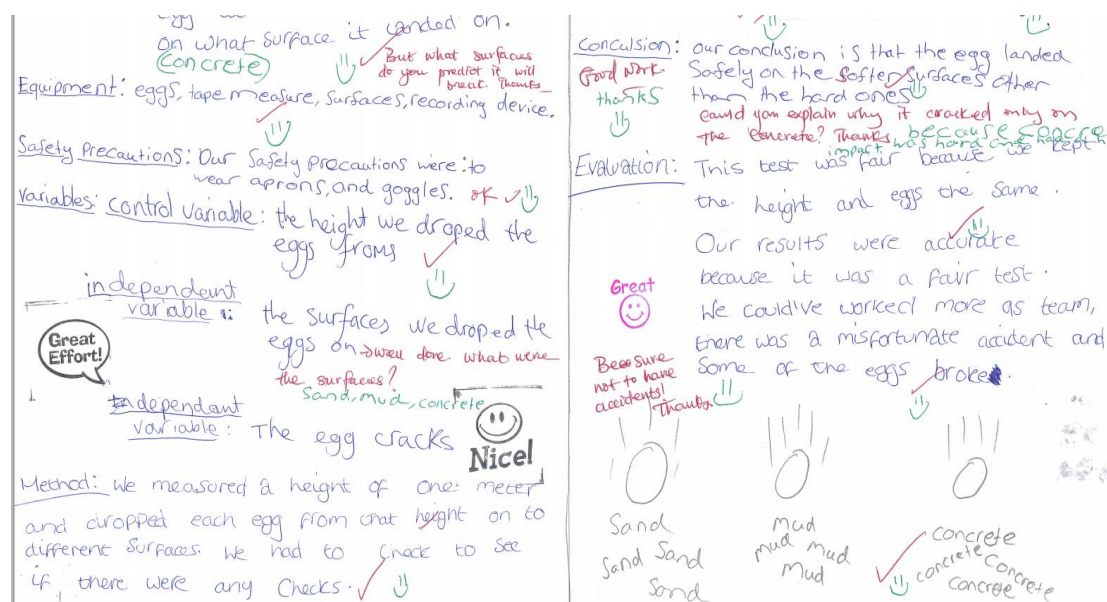 on what surface it landed on.
concrete
But what surfaces
do you predict it will
break. Thanks
Equipment: eggs, tape measure, surfaces, recording device.
Safety Precautions: Our Safety precautions were: to
wear aprons, and goggles. ok
Variables: Control Variable: the height we droped the
eggs from
independant
variable: the surfaces we droped the
eggs on → well done what were
the surfaces?
Sand, mud, concrete
Great
Effort!
dependant
variable: The egg cracks
Nice!
Method: We measured a height of one meter
and dropped each egg from that height on to
different surfaces. We had to check to see
if there were any Checks.
Conculsion: our conclusion is that the egg landed
Safely on the softer surfaces other
than the hard ones
Good work
thanks
could you explain why it cracked only on
the concrete? Thanks, because concre
impact was hard and
Evaluation: This test was fair because we kept
the height and eggs the same.
Our results were accurate
because it was a fair test.
We could've worked more as team,
there was a misfortunate accident and
Some of the eggs broke.
Great
Beee sure
not to have
accidents!
Thanks
Sand
Sand Sand
Sand
mud
mud mud
Mud
concrete
concrete concrete
concrete